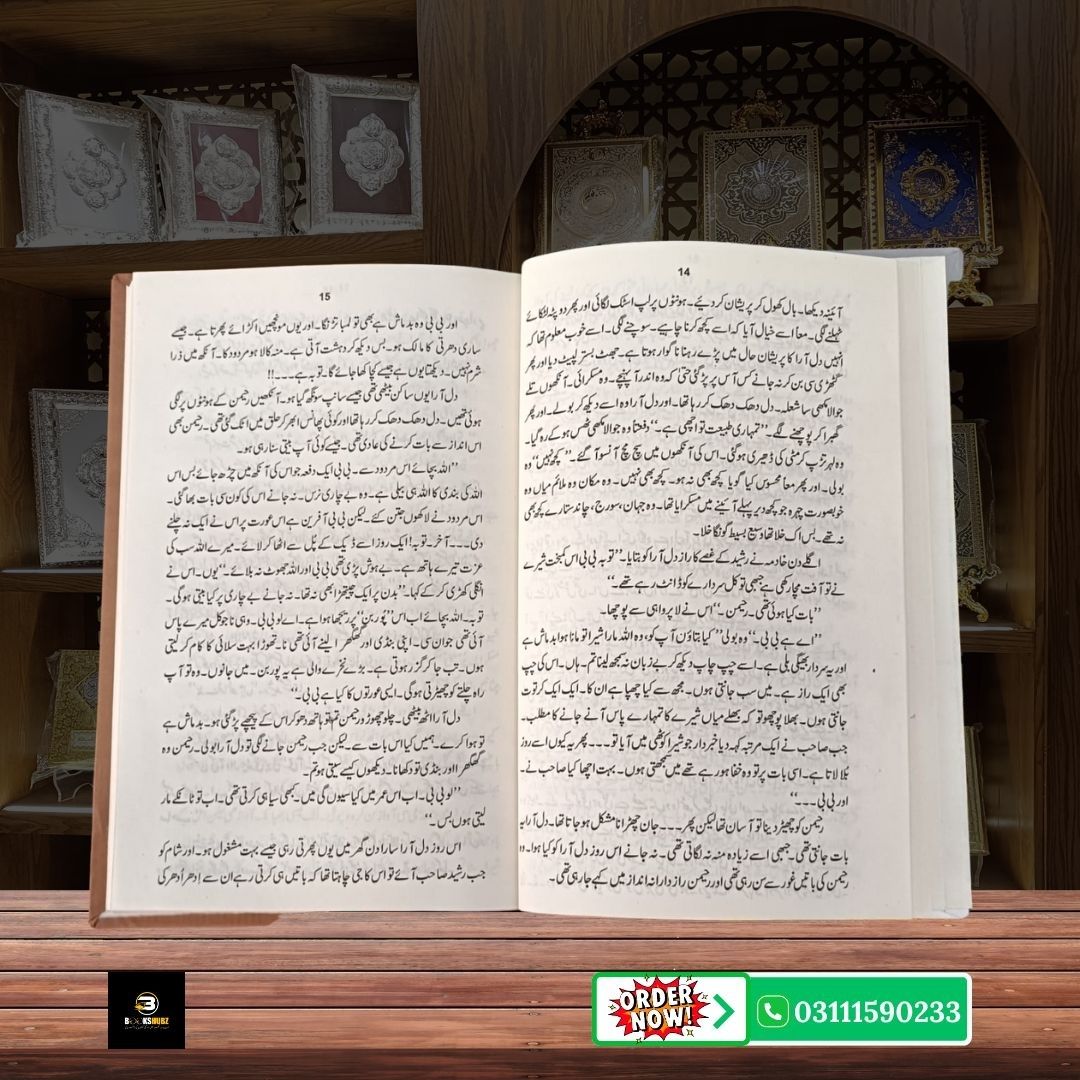 14
آئینہ دیکھا۔ بال کھول کر پریشان کر دیئے۔ ہونٹوں پر لپ اسٹک لگائی اور پھر دوپٹہ لٹکائے
ٹہلنے لگی۔ معاً اسے خیال آیا کہ اسے کچھ کرنا چاہیے۔ سوچنے لگی۔ اسے خوب معلوم تھا کہ
انہیں دل آرا کا پریشان حال میں پڑے رہنا ناگوار ہوتا ہے۔ جھٹ بستر لپیٹ دیا اور پھر
گٹھڑی سی بن کر نہ جانے کس آس پر پڑ گئی حتیٰ کہ وہ اندر آ پہنچے۔ وہ مسکرائی۔ آنکھوں تلے
جوالا مکھی سا شعلہ۔ دل دھک دھک کر رہا تھا۔ اور دل آرا وہ اسے دیکھ کر بولے۔ اور پھر
گھبرا کر پوچھنے لگے۔ ”تمہاری طبیعت تو اچھی ہے۔“ دفعتاً وہ جوالا مکھی ٹھس ہو کے رہ گیا۔
وہ لہر تڑپ کر مٹی کی ڈھیری ہو گئی۔ اس کی آنکھوں میں سچ مچ آنسو آ گئے۔ ”کچھ نہیں“ وہ
بولی۔ اور پھر معاً محسوس کیا گویا کچھ بھی نہ ہو۔ کچھ بھی نہیں۔ وہ مکان وہ ملائم میاں وہ
خوبصورت چہرہ جو کچھ دیر پہلے آئینے میں مسکرایا تھا۔ وہ جہان، سورج، چاند ستارے کچھ بھی
نہ تھے۔ بس اک خلا تھا وسیع بسیط گونگا خلا۔
اگلے دن خادمہ نے رشید کے غصے کا راز دل آرا کو بتایا۔ ”توبہ بی بی اس کمبخت شیرے
نے تو آفت مچا رکھی ہے جبھی تو کل سردارے کو ڈانٹ رہے تھے۔“
”بات کیا ہوئی تھی۔ رحیمن۔“ اس نے لا پرواہی سے پوچھا۔
”اے ہے بی بی۔“ وہ بولی ”کیا بتاؤں آپ کو، وہ اللہ مارا شیرا تو مانا ہوا بدماش ہے
اور یہ سردار بھیگی بلی ہے۔ اسے چپ چاپ دیکھ کر بے زبان نہ سمجھ لینا تم۔ ہاں۔ اس کی چپ
بھی ایک راز ہے۔ میں سب جانتی ہوں۔ مجھ سے کیا چھپا ہے ان کا۔ ایک ایک کرتوت
جانتی ہوں۔ بھلا پوچھو تو کہ بھلے میاں شیرے کا تمہارے پاس آنے جانے کا مطلب۔
جب صاحب نے ایک مرتبہ کہہ دیا خبردار جو شیرا کوٹھی میں آیا تو۔۔۔ پھر یہ کیوں اسے روز
بلا لاتا ہے۔ اسی بات پر تو وہ خفا ہو رہے تھے میں سمجھتی ہوں۔ بہت اچھا کیا صاحب نے۔
اور بی بی۔۔۔“
رحیمن کو چھیڑ دینا تو آسان تھا لیکن پھر۔۔۔ جان چھڑانا مشکل ہو جاتا تھا۔ دل آرا یہ
بات جانتی تھی۔ جبھی اسے زیادہ منہ نہ لگاتی تھی۔ نہ جانے اس روز دل آرا کو کیا ہوا۔ وہ
رحیمن کی باتیں غور سے سن رہی تھی اور رحیمن راز دارانہ انداز میں کہے جا رہی تھی۔
15
اور بی بی وہ بدماش ہے بھی تو لمبا تڑنگا۔ اور یوں مونچھیں اکڑائے پھرتا ہے۔ جیسے
ساری دھرتی کا مالک ہو۔ بس دیکھ کر دہشت آتی ہے۔ منہ کالا ہو مردود کا۔ آنکھ میں ذرا
شرم نہیں۔ دیکھتا یوں ہے جیسے کچا کھا جائے گا۔ توبہ ہے۔۔۔!!
دل آرا یوں ساکن بیٹھی تھی جیسے سانپ سونگھ گیا ہو۔ آنکھیں رحیمن کے ہونٹوں پر لگی
ہوئی تھیں۔ دل دھک دھک کر رہا تھا اور کوئی پھانس ابھر کر حلق میں اٹک گئی تھی۔ رحیمن بھی
اس انداز سے بات کرنے کی عادی تھی۔ جیسے کوئی آپ بیتی سنا رہی ہو۔
”اللہ بچائے اس مردود سے۔ بی بی ایک دفعہ جو اس کی آنکھ میں چڑھ جائے بس اس
اللہ کی بندی کا اللہ ہی بیلی ہے۔ وہ بے چاری نرس۔ نہ جانے اس کی کون سی بات بھا گئی۔
اس مردود نے لاکھوں جتن کئے۔ لیکن بی بی آفرین ہے اس عورت پر اس نے ایک نہ چلنے
دی۔۔۔ آخر۔ توبہ! ایک روز اسے ڈیک کے پُل سے اٹھا کر لائے۔ میرے اللہ سب کی
عزت تیرے ہاتھ ہے۔ بے ہوش پڑی تھی بی بی اور اللہ جھوٹ نہ بلائے۔ ”یوں۔ اس نے
انگلی کھڑی کر کے کہا۔ ”بدن پر ایک چیتھڑا بھی نہ تھا۔ نہ جانے بے چاری پر کیا بیتی ہوگی۔
توبہ۔ اللہ بچائے اب اس ”پُوربن“ پر ریجھا ہوا ہے۔ اے لو بی بی۔ وہی نا جو کل میرے پاس
آئی تھی جوان سی۔ اپنی بنڈی اور گھگھر ا لینے آئی تھی نا۔ تھوڑا بہت سلائی کا کام کر لیتی
ہوں۔ تب جا کر گزر ہوتی ہے۔ بڑے نخرے والی ہے یہ پوربن۔ میں جانوں۔ وہ تو آپ
راہ چلتے کو چھیڑتی ہوگی۔ ایسی عورتوں کا کیا ہے بی بی۔“
دل آرا اٹھ بیٹھی۔ چلو چھوڑو رحیمن تم تو ہاتھ دھو کر اس کے پیچھے پڑ گئی ہو۔ بدماش ہے
تو ہوا کرے۔ ہمیں کیا اس بات سے۔ لیکن جب رحیمن جانے لگی تو دل آرا بولی۔ رحیمن وہ
گھگھر ا اور بنڈی تو دکھانا۔ دیکھوں کیسے سیتی ہو تم۔
”لو بی بی۔ اب اس عمر میں کیا سیوں گی میں۔ کبھی سیا ہی کرتی تھی۔ اب تو ٹانکے مار
لیتی ہوں بس۔“
اس روز دل آرا سارا دن گھر میں یوں پھرتی رہی جیسے بہت مشغول ہو۔ اور شام کو
جب رشید صاحب آئے تو اس کا جی چاہتا تھا کہ باتیں ہی کرتی رہے ان سے اِدھر اُدھر کی
BOOKSHUBZ
ORDER
NOW!
03111590233